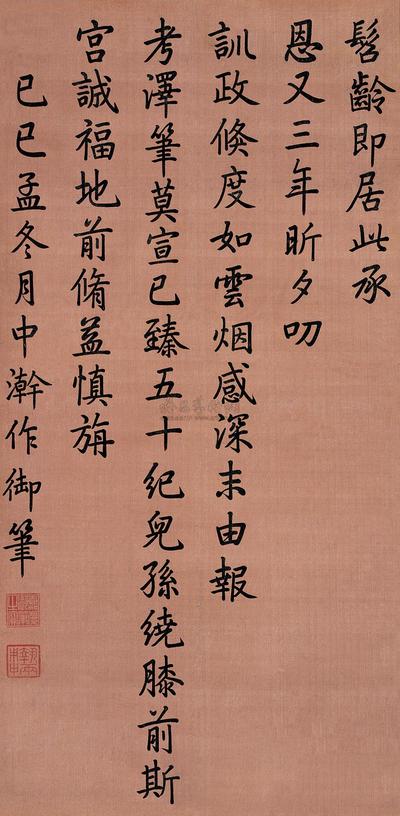 髫齡即居此承
恩又三年昕夕叨
訓政倐度如雲烟感深末由報
考澤筆莫宣已臻五十紀兒孫繞膝前斯
宮誠福地前脩益慎旃
己巳孟冬月中澣作御筆